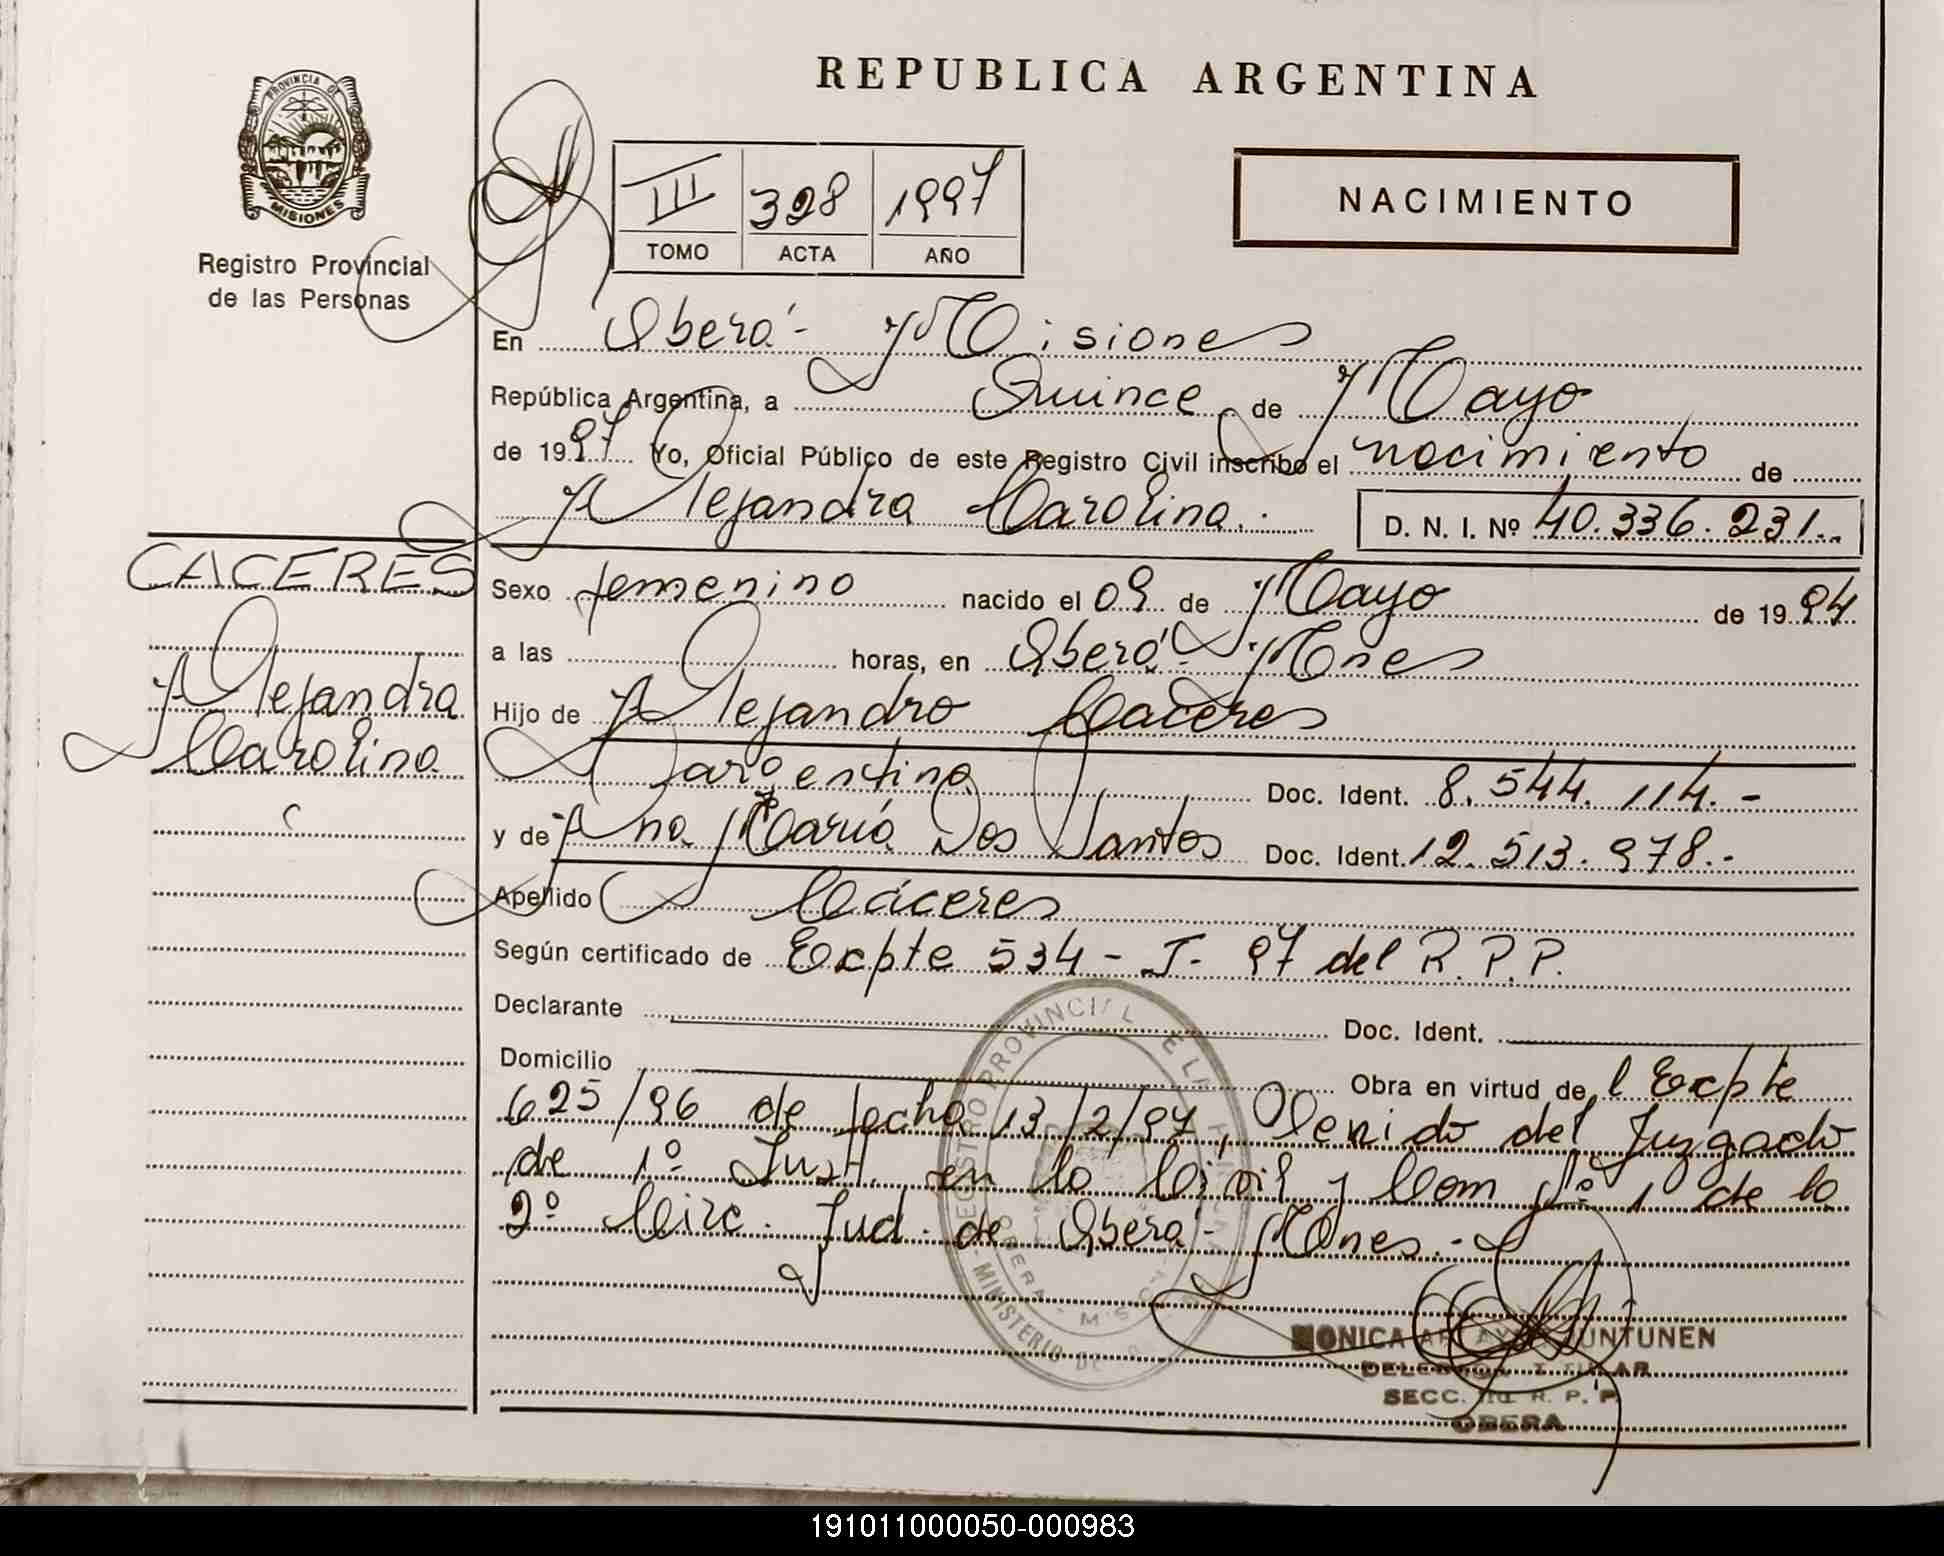 REPUBLICA ARGENTINA
PROVINCIA DE
MISIONES
Registro Provincial
de las Personas
III 398 1997
TOMO ACTA AÑO
NACIMIENTO
En Oberá - Misiones
República Argentina, a Quince de Mayo
de 1997 Yo, Oficial Público de este Registro Civil inscribo el nacimiento de
Alejandra Carolina.- D. N. I. Nº 40.336.231.-
CACERES
Alejandra
Carolina
Sexo femenino nacido el 09 de Mayo de 1994
a las horas, en Oberá - Mnes
Hijo de Alejandro Caceres
argentino Doc. Ident. 8.544.114.-
y de Ana María Dos Santos Doc. Ident. 12.513.978.-
Apellido Cáceres
Según certificado de Expte 534 - J - 97 del R.P.P.
Declarante Doc. Ident.
Domicilio Obra en virtud de l Expte
625/96 de fecha 13/2/97, Venido del Juzgado
de 1º Inst. en lo Civil y Com Nº 1 de la
2º Circ. Jud. de Oberá - Mnes.-
MINISTERIO DE
MONICA UNTUNEN
SECC. R. P. P.
OBERA
191011000050-000983